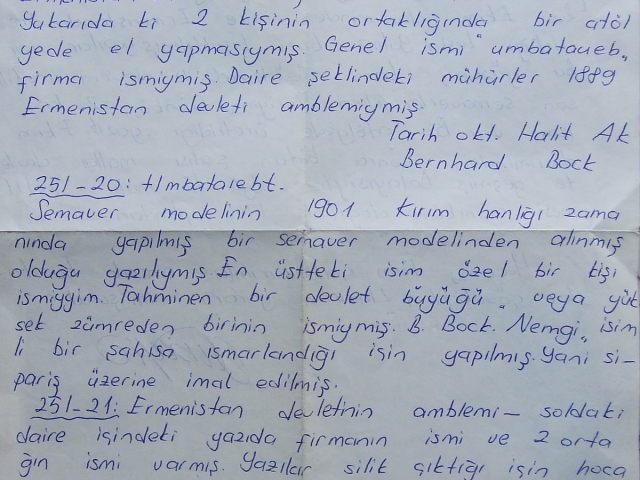 Yukarıda ki 2 kişinin ortaklığında bir atöl
yede el yapmasıymış. Genel ismi "umbataueb"
firma ismiymiş. Daire şeklindeki mühürler 1889
Ermenistan devleti amblemiymiş.
Tarih okt. Halit Ak
Bernhard Bock
251-20: tlmbatarebt.
Semaver modelinin 1901 Kırım hanlığı zama
nında yapılmış bir semaver modelinden alınmış
olduğu yazılıymış. En üstteki isim özel bir kişi
ismiyim. Tahminen bir devlet büyüğü, veya yük
sek zümreden birinin ismiymiş. B. Bock. Nemgi, isim
li bir şahısa ısmarlandığı için yapılmış. Yani si-
pariş üzerine imal edilmiş.
251-21: Ermenistan devletinin amblemi- soldaki
daire içindeki yazıda firmanın ismi ve 2 orta
ğın ismi varmış. Yazılar silik çıktığı için hoca